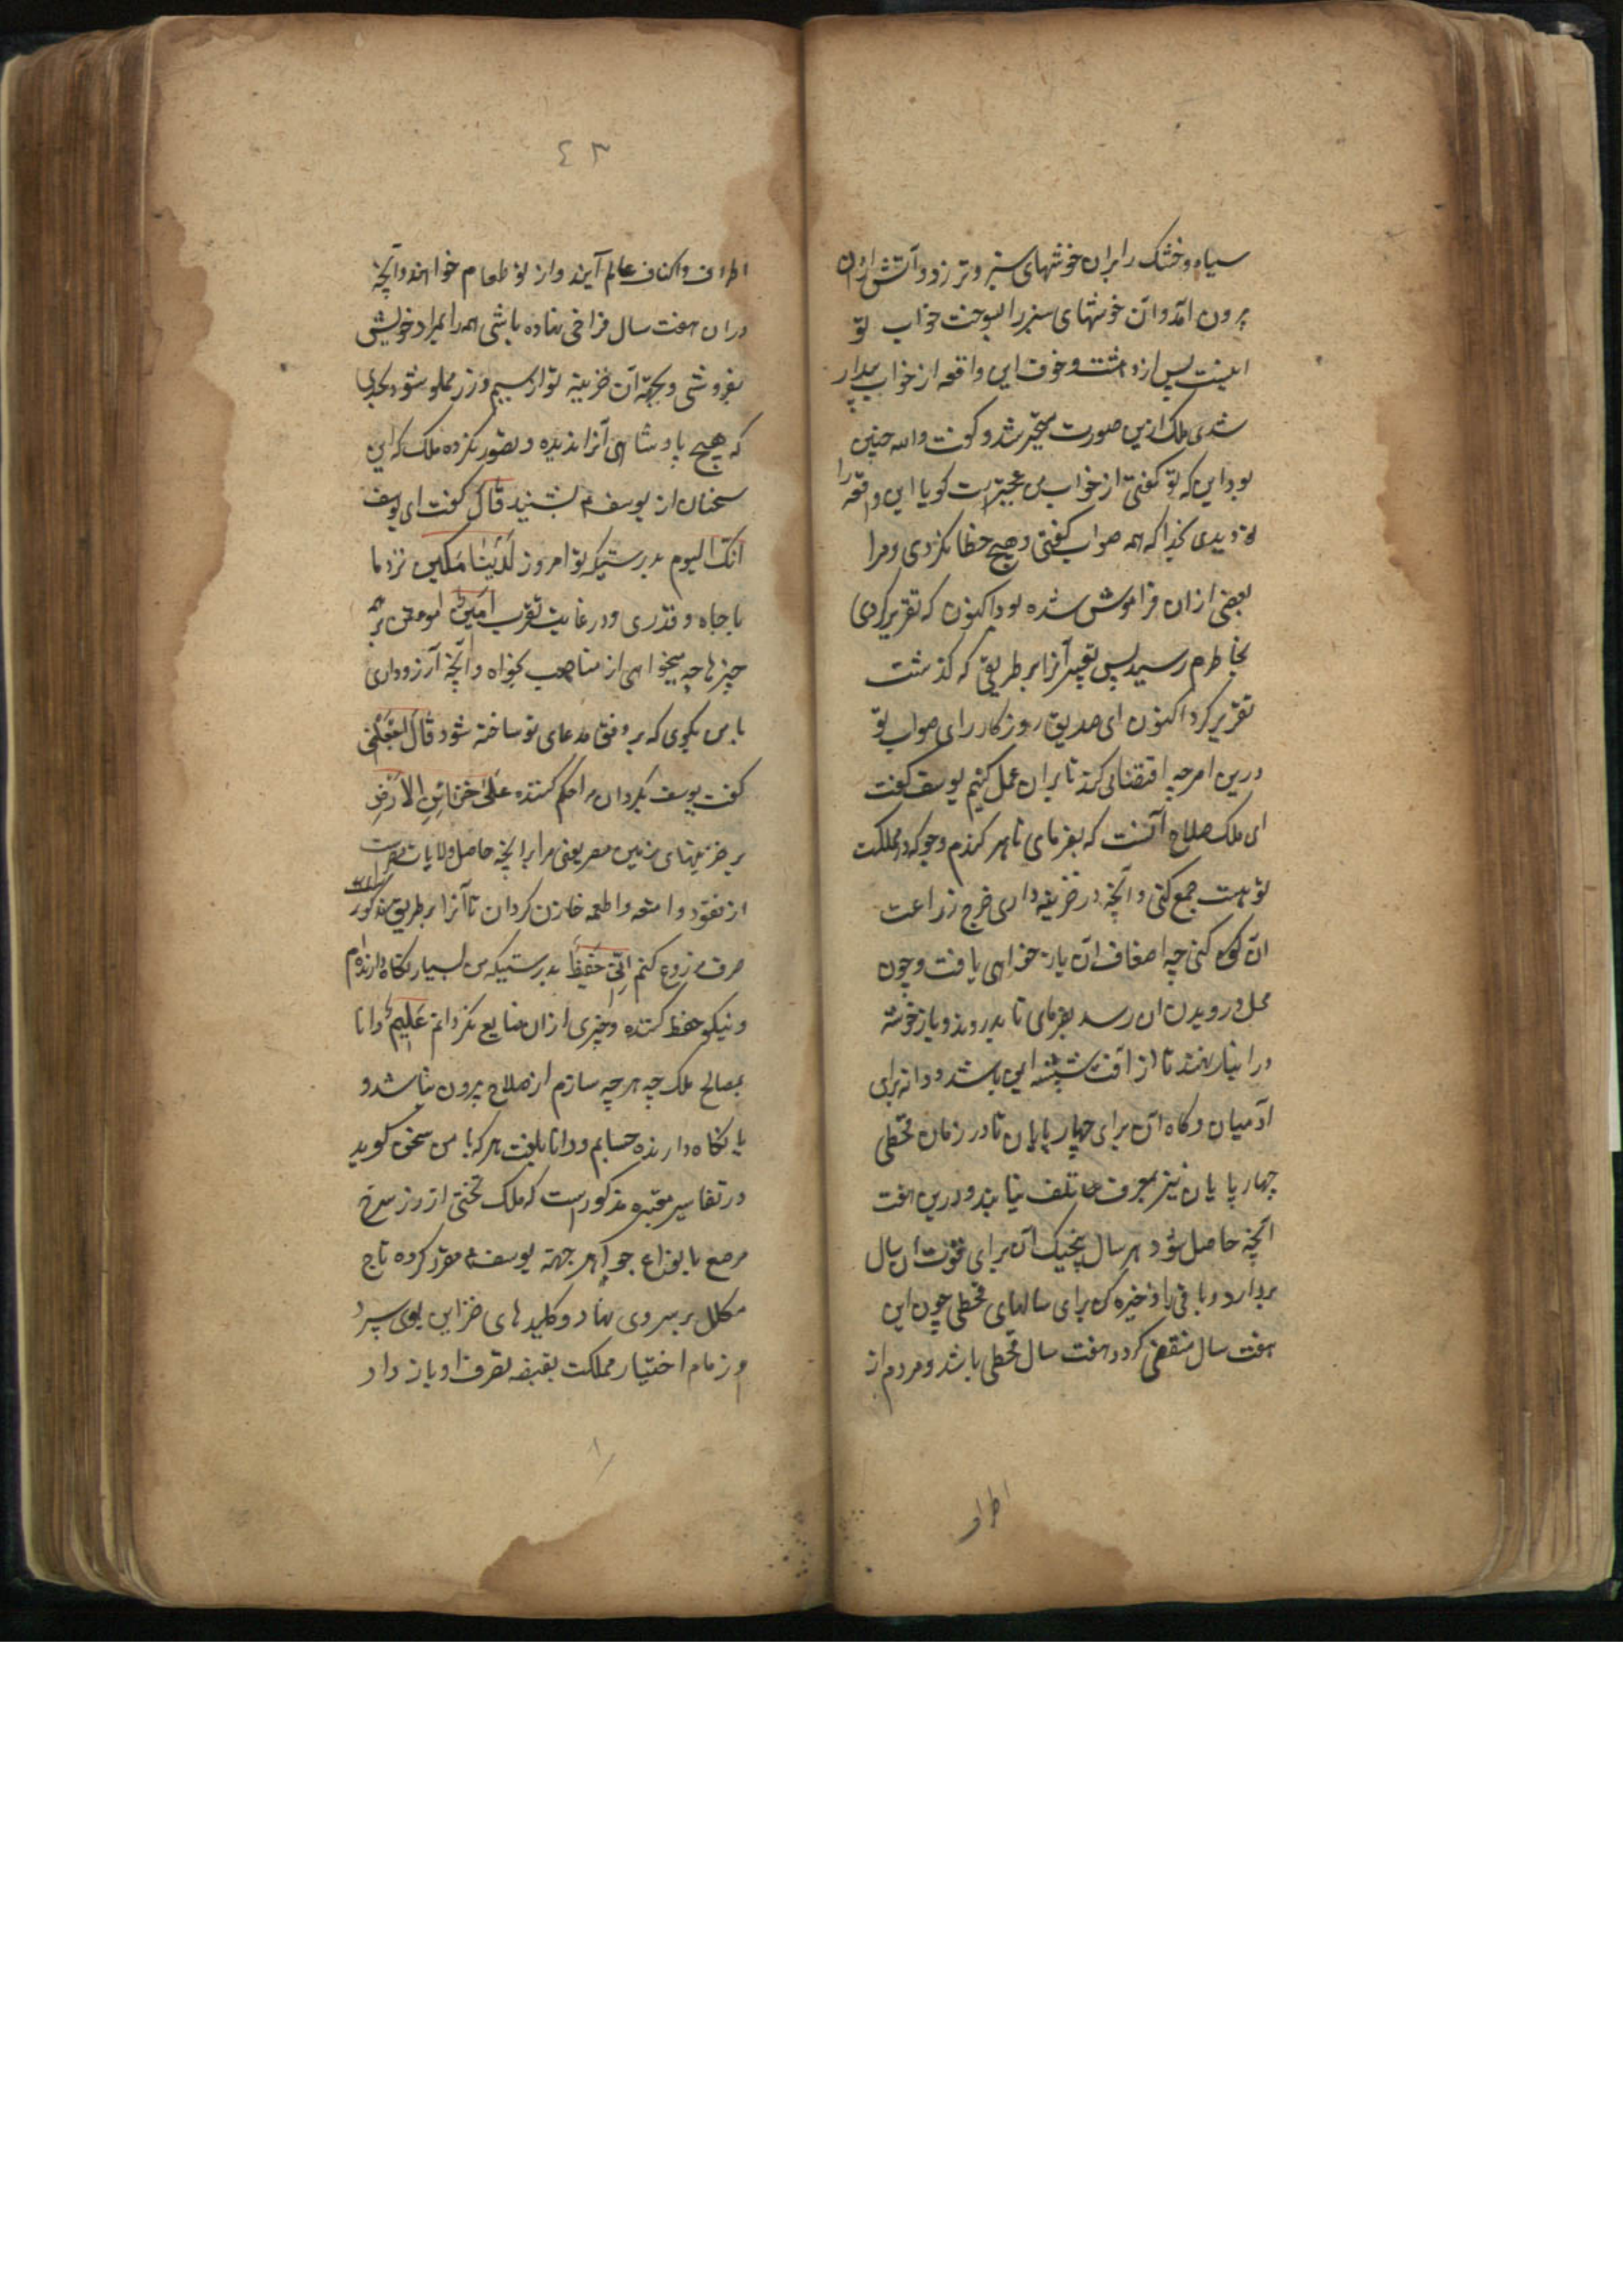 سیاه و خشک را بران خوشهای سبز و تر زد و آتش ازان
برون آمد و آن خوشهای سبز را بسوخت خواب تو
اینست پس از دهشت و خوف این واقعه از خواب بیدار
شدی ملک ازین صورت متحیر شد و گفت والله چنین
بود این که تو گفتی از خواب من عجبتر است گویا این واقعه را
تو دیدی بخدا که همه صواب گفتی و هیچ خطا نکردی و مرا
بعضی ازان فراموش شده بود اکنون که تقریر کردی
بخاطرم رسید پس تعبیر آنرا بر طریقی که گذشت
تقریر کرد اکنون ای صدیق روزگار رای صواب تو
درین امر چه اقتضا می کند تا بران عمل کنیم یوسف گفت
ای ملک صلاح آنست که بفرمای تا هر گندم و جو که در مملکت
تو هست جمع کنی و آنچه در خزینه داری خرج زراعت
آن کنی چه اضعاف آن باز خواهی یافت و چون
محل درویدن آن رسد بفرمای تا بدروند و با خوشه
در انبار نهند تا از آفت شپشه ایمن باشد و دانه برای
آدمیان و کاه آن برای چهارپایان تا در زمان قحطی
چهارپایان نیز بمعرف تلف نیابند و درین هفت
آنچه حاصل شود هر سال پنجیک آن برای قوت آن سال
بردارد و باقی را ذخیره کن برای سالهای قحطی چون این
هفت سال منقضی گردد هفت سال قحطی باشد و مردم از
اطراف
٤٣
اطراف و اکناف عالم آیند و از تو طعام خواهند و آنچه
دران هفت سال فراخی نهاده باشی همه را بمراد خویش
بفروشی و بجهة آن خزینه تو از سیم و زر مملو شود بحدی
که هیچ پادشاهی آنرا ندیده و تصور نکرده ملک که این
سخنان از یوسف ع بشنید قَالَ گفت ای یوسف
انک الیوم بدرستیکه تو امروز لَدَیْنَا مَکِین نزد ما
با جاه و قدری و در غایت تقرب اَمِینٌ مؤتمن بر همه
چیزها چه میخواهی از مناصب بخواه و آنچه آرزو داری
با من بگوی که بر وفق مدعای تو ساخته شود قَالَ اجْعَلْنِی
گفت یوسف بگردان مرا حکم کننده عَلیٰ خَزَائِنِ الاَرْضِ
بر خزینهای زمین مصر یعنی مرا بر آنچه حاصل ولایات مصر است
از نقود و امتعه و اطعمه خازن گردان تا آنرا بر طریق مذکور
صرف مزروع کنم اِنّی حَفِیظٌ بدرستیکه من بسیار نگاه دارنده ام
و نیکو حفظ کننده و چیزی ازان ضایع نگردانم عَلِیمٌ دانا
بمصالح ملک چه هر چه سازم از صلاح برون نباشد و
یا نگاه دارنده حسابم و دانا بلغت هر که با من سخن گوید
در تفاسیر معتبره مذکور است که ملک تختی از زر سرخ
مرصع بانواع جواهر جهة یوسف ع مقرر کرده تاج
مکلل بر سر وی نهاد و کلیدهای خزاین بوی سپرد
و زمام اختیار مملکت بقبضه تصرف او باز داد